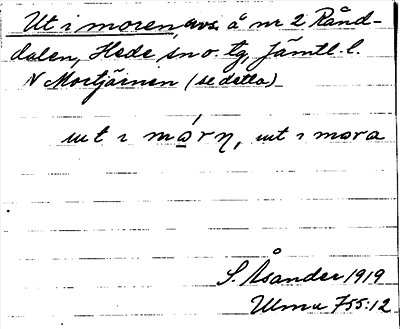 Ut i moren, avs. å nr 2 Rånd-
dalen, Hede sn o. tg, Jämtl. l.
N Mortjärnen (se detta)
ut i mórn, ut i mora
S. Åsander 1919
Ulma 755:12